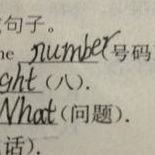 句子。
he number(号码
ght(八).
What(问题).
话).